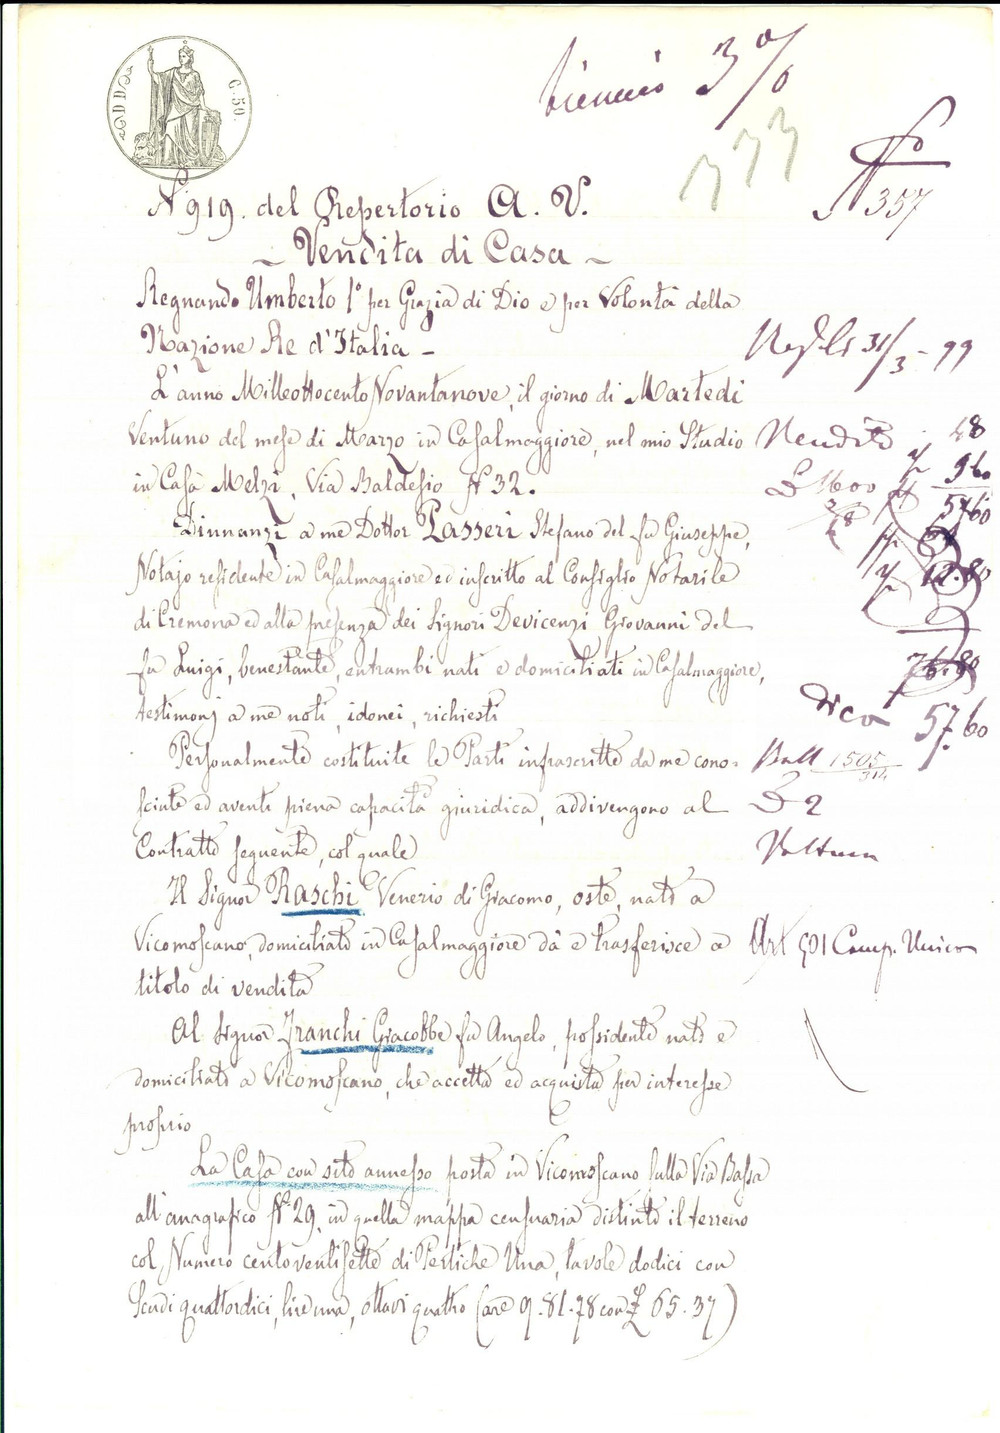 C. 50.
3 %
333
N° 357
N° 919. del Repertorio A. V.
- Vendita di Casa -
Regnando Umberto 1° per Grazia di Dio e per Volontà della
Nazione Re d'Italia -
L'anno Milleottocento Novantanove, il giorno di Martedì
Ventuno del mese di Marzo in Casalmaggiore, nel mio Studio
in Casa Melzi, Via Baldesio N° 32.
Dinnanzi a me Dottor Passeri Stefano del fu Giuseppe,
Notajo residente in Casalmaggiore ed inscritto al Consiglio Notarile
di Cremona ed alla presenza dei Signori Devicenzi Giovanni del
fu Luigi, benestante, entrambi nati e domiciliati in Casalmaggiore,
testimonj a me noti, idonei, richiesti
Personalmente costituite le Parti infrascritte da me cono-
sciute ed aventi piena capacità giuridica, addivengono al
Contratto seguente, col quale
Il Signor Raschi Venerio di Giacomo, oste, nato a
Vicomoscano, domiciliato in Casalmaggiore dà e trasferisce a
titolo di vendita
Al Signor Franchi Giacobbe fu Angelo, possidente nato e
domiciliato a Vicomoscano, che accetta ed acquista per interesse
proprio
La Casa con sito annesso posta in Vicomoscano sulla Via Bassa
all'anagrafico N° 29, in quella mappa censuaria distinto il terreno
col Numero centoventisette di Pertiche Una, tavole dodici con
Scudi quattordici, lire una, ottavi quattro (are 9.81.78 con £ 65.37)
31/3 - 99
Vendita 48
960
5760
12.80
76.80
dico 57.60
1505
£ 2
Voltura
Art 501 Camp. Unico